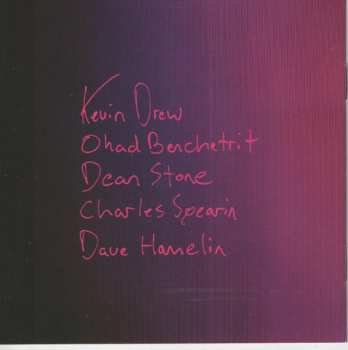 Kevin Drew
Ohad Benchetrit
Dean Stone
Charles Spearin
Dave Hamelin